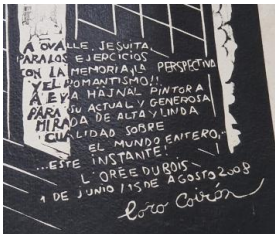 A OVALLE, JESUITA,
PARA LOS EJERCICIOS
CON LA MEMORIA, LA PERSPECTIVA
Y EL ROMANTISMO!!
A EYA HAJNAL PINTORA
PARA SU ACTUAL Y GENEROSA
MIRADA DE ALTA Y LINDA
CUALIDAD SOBRE
EL MUNDO ENTERO,
...ESTE INSTANTE!
L'ORÉE DU BOIS
1 DE JUNIO/15 DE AGOSTO 2008
loro Coirón